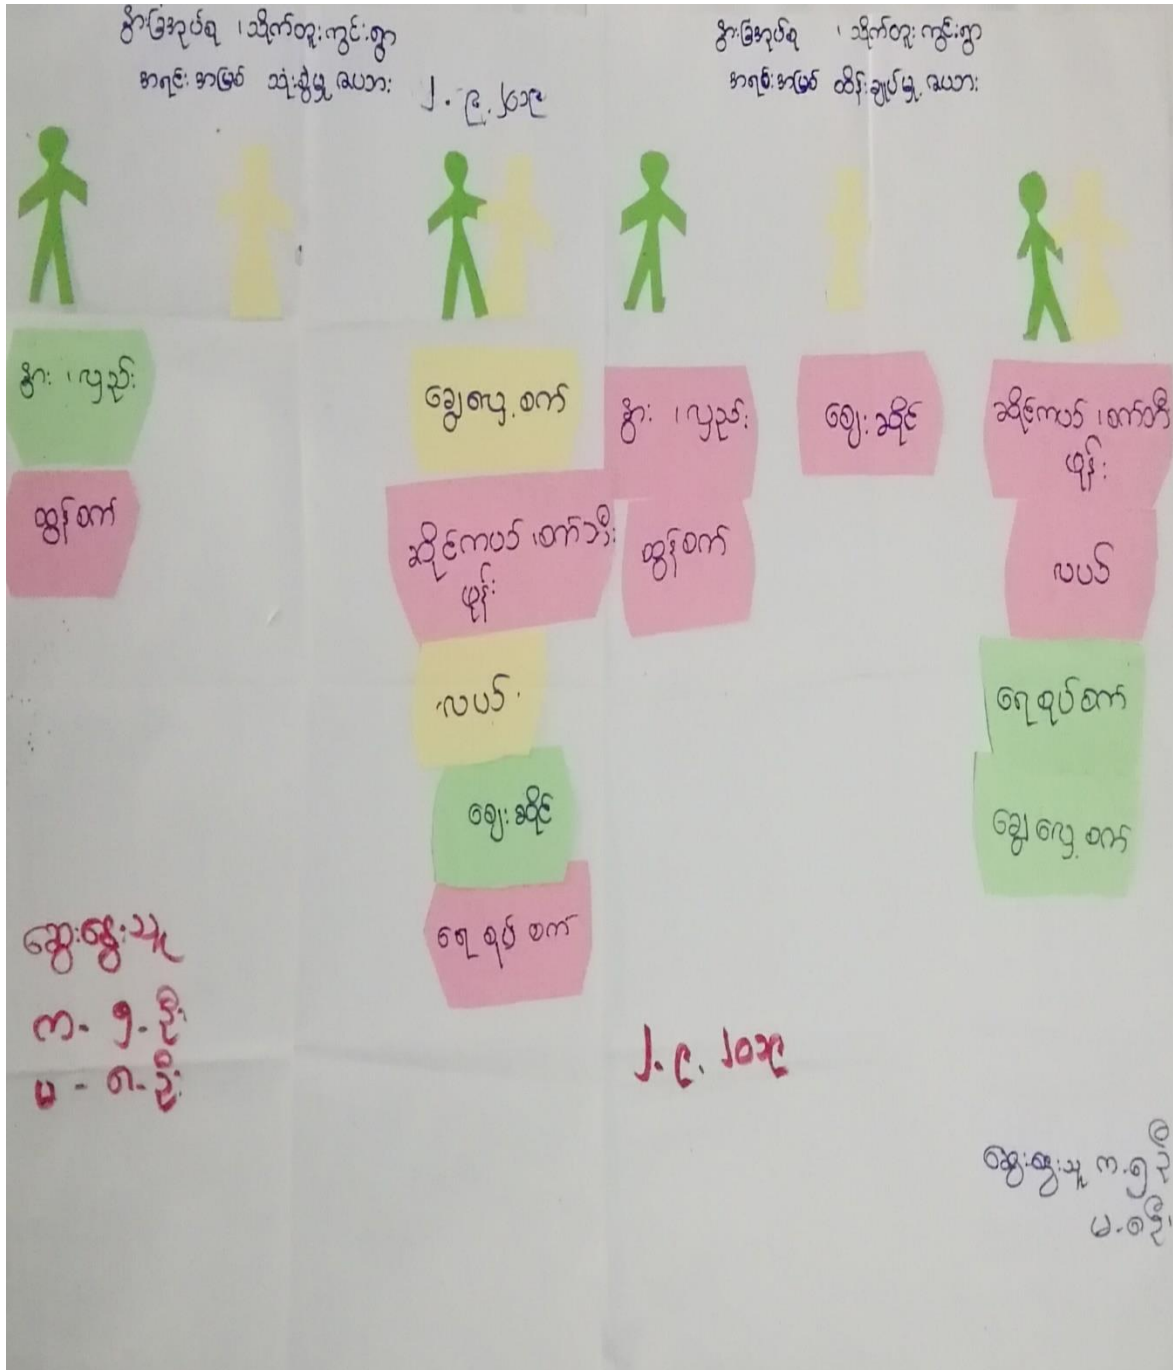 နွားခြံအုပ်စု ၊ သိုက်တူးကွင်းရွာ
အရင်းအမြစ် သုံးစွဲမှု ဇယား
၂.၉.၂၀၁၉
နွား ၊ လှည်း
ထွန်စက်
ချွေလှေ့စက်
ဆိုင်ကယ် ၊ စက်ဘီး
ဖုန်း
လယ်
ဈေးဆိုင်
ရေစုပ်စက်
ဆွေးနွေးသူ
က - ၅ - ဦး
မ - ၈ - ဦး
နွားခြံအုပ်စု ၊ သိုက်တူးကွင်းရွာ
အရင်းအမြစ် ထိန်းချုပ်မှု ဇယား
နွား ၊ လှည်း
ထွန်စက်
ဈေးဆိုင်
ဆိုင်ကယ် ၊ စက်ဘီး
ဖုန်း
လယ်
ရေစုပ်စက်
ချွေလှေ့စက်
၂.၉.၂၀၁၉
ဆွေးနွေးသူ က.၅ဦး
မ.၈ဦး